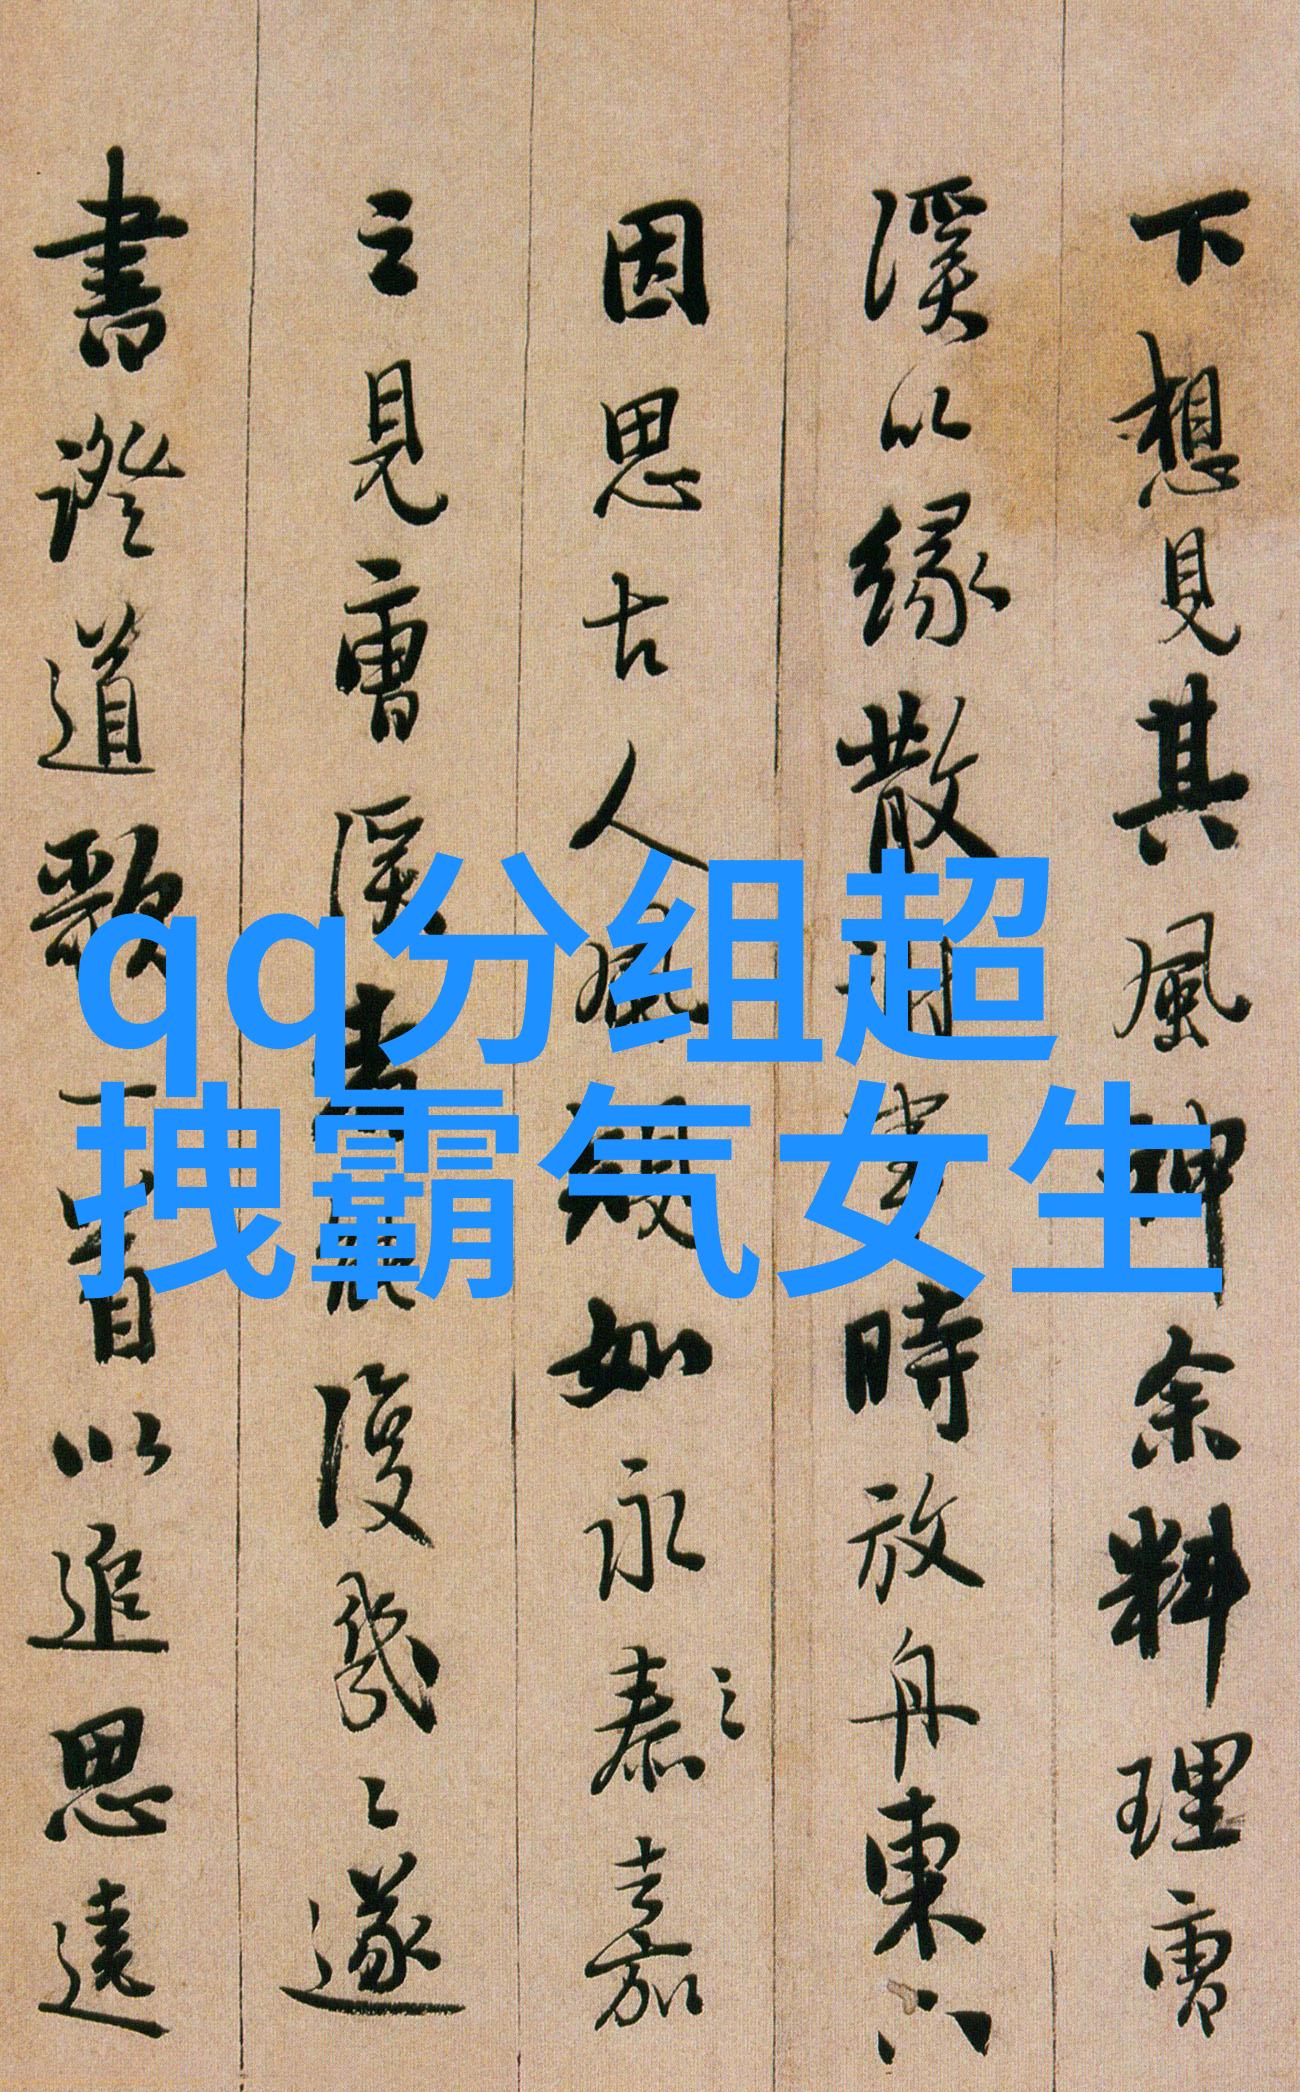 下想見其風神余料理曹
溪以緣散時放舟東下
因思古人風如永泰之嘉
之見曹溪後哉遂
書證道歌一首以追思遠
qq分组超
拽霸气女生